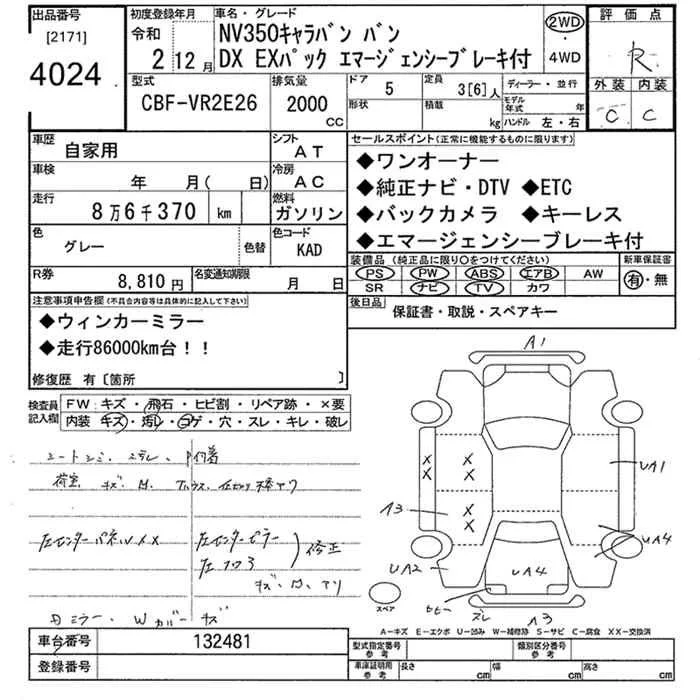 出品番号
[2171]
4024
初度登録年月
令和
2 12月
車名・グレード
NV350キャラバン バン
DX EXパック エマージェンシーブレーキ付
2WD
・
4WD
評価点
R
外装 内装
C C
型式
CBF-VR2E26
排気量
2000
CC
ドア
5
形状
定員
3[6]人
積載
kg
ディーラー・並行
モデル年式 年
ハンドル 左・右
車歴
自家用
シフト
AT
車検
年 月( 日)
冷房
AC
走行
8万6千370 km
燃料
ガソリン
色
グレー
色替
色コード
KAD
R券
8,810円
名変通知期限
月 日
セールスポイント(正常に機能するものに限ります)
◆ワンオーナー
◆純正ナビ・DTV ◆ETC
◆バックカメラ ◆キーレス
◆エマージェンシーブレーキ付
装備品(純正品に限り○をつけてください)
PS PW ABS エアB AW
SR ナビ TV カワ
新車保証書
有・無
後日品
保証書・取説・スペアキー
注意事項申告欄(不具合内容等は具体的に記入して下さい)
◆ウィンカーミラー
◆走行86000km台!!
修復歴 有〔箇所 〕
検査員
記入欄
FW:キズ・飛石・ヒビ割・リペア跡・×要
内装:キズ・汚レ・コゲ・穴・スレ・キレ・破レ
荷室 キズ
左センターパネル××
左センターピラー
修正
ミラー W カバー キズ
A1
X
X
X
X
X
A3
UA1
UA4
UA2
UA4
スペア
ズレ
A3
A-キズ E-エクボ U-凹み W-補修跡 S-サビ C-腐食 XX-交換済
車台番号
132481
登録番号
型式指定番号
参考
類別区分番号
参考
車庫証明用
参考
長さ cm
幅 cm
高さ cm